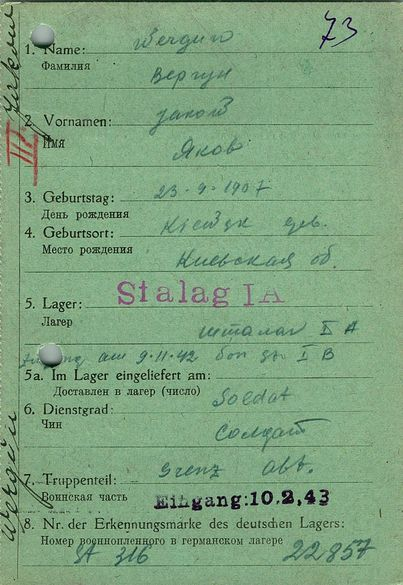 73
1. Name: Wergun
Фамилия
Вергун
2. Vornamen: Jakow
Имя
Яков
3. Geburtstag: 23-9-1907
День рождения
4. Geburtsort:
Место рождения
Киевская об.
5. Lager: Stalag IA
Лагер
шталаг I A
Zugang am 9.11.42 von I B
5a. Im Lager eingeliefert am:
Доставлен в лагер (число)
6. Dienstgrad: Soldat
Чин
Солдат
7. Truppenteil: Grenz Abt.
Воинская часть
Eingang: 10.2.43
8. Nr. der Erkennungsmarke des deutschen Lagers:
Номер военнопленного в германском лагере
316 22857
III
Wergun